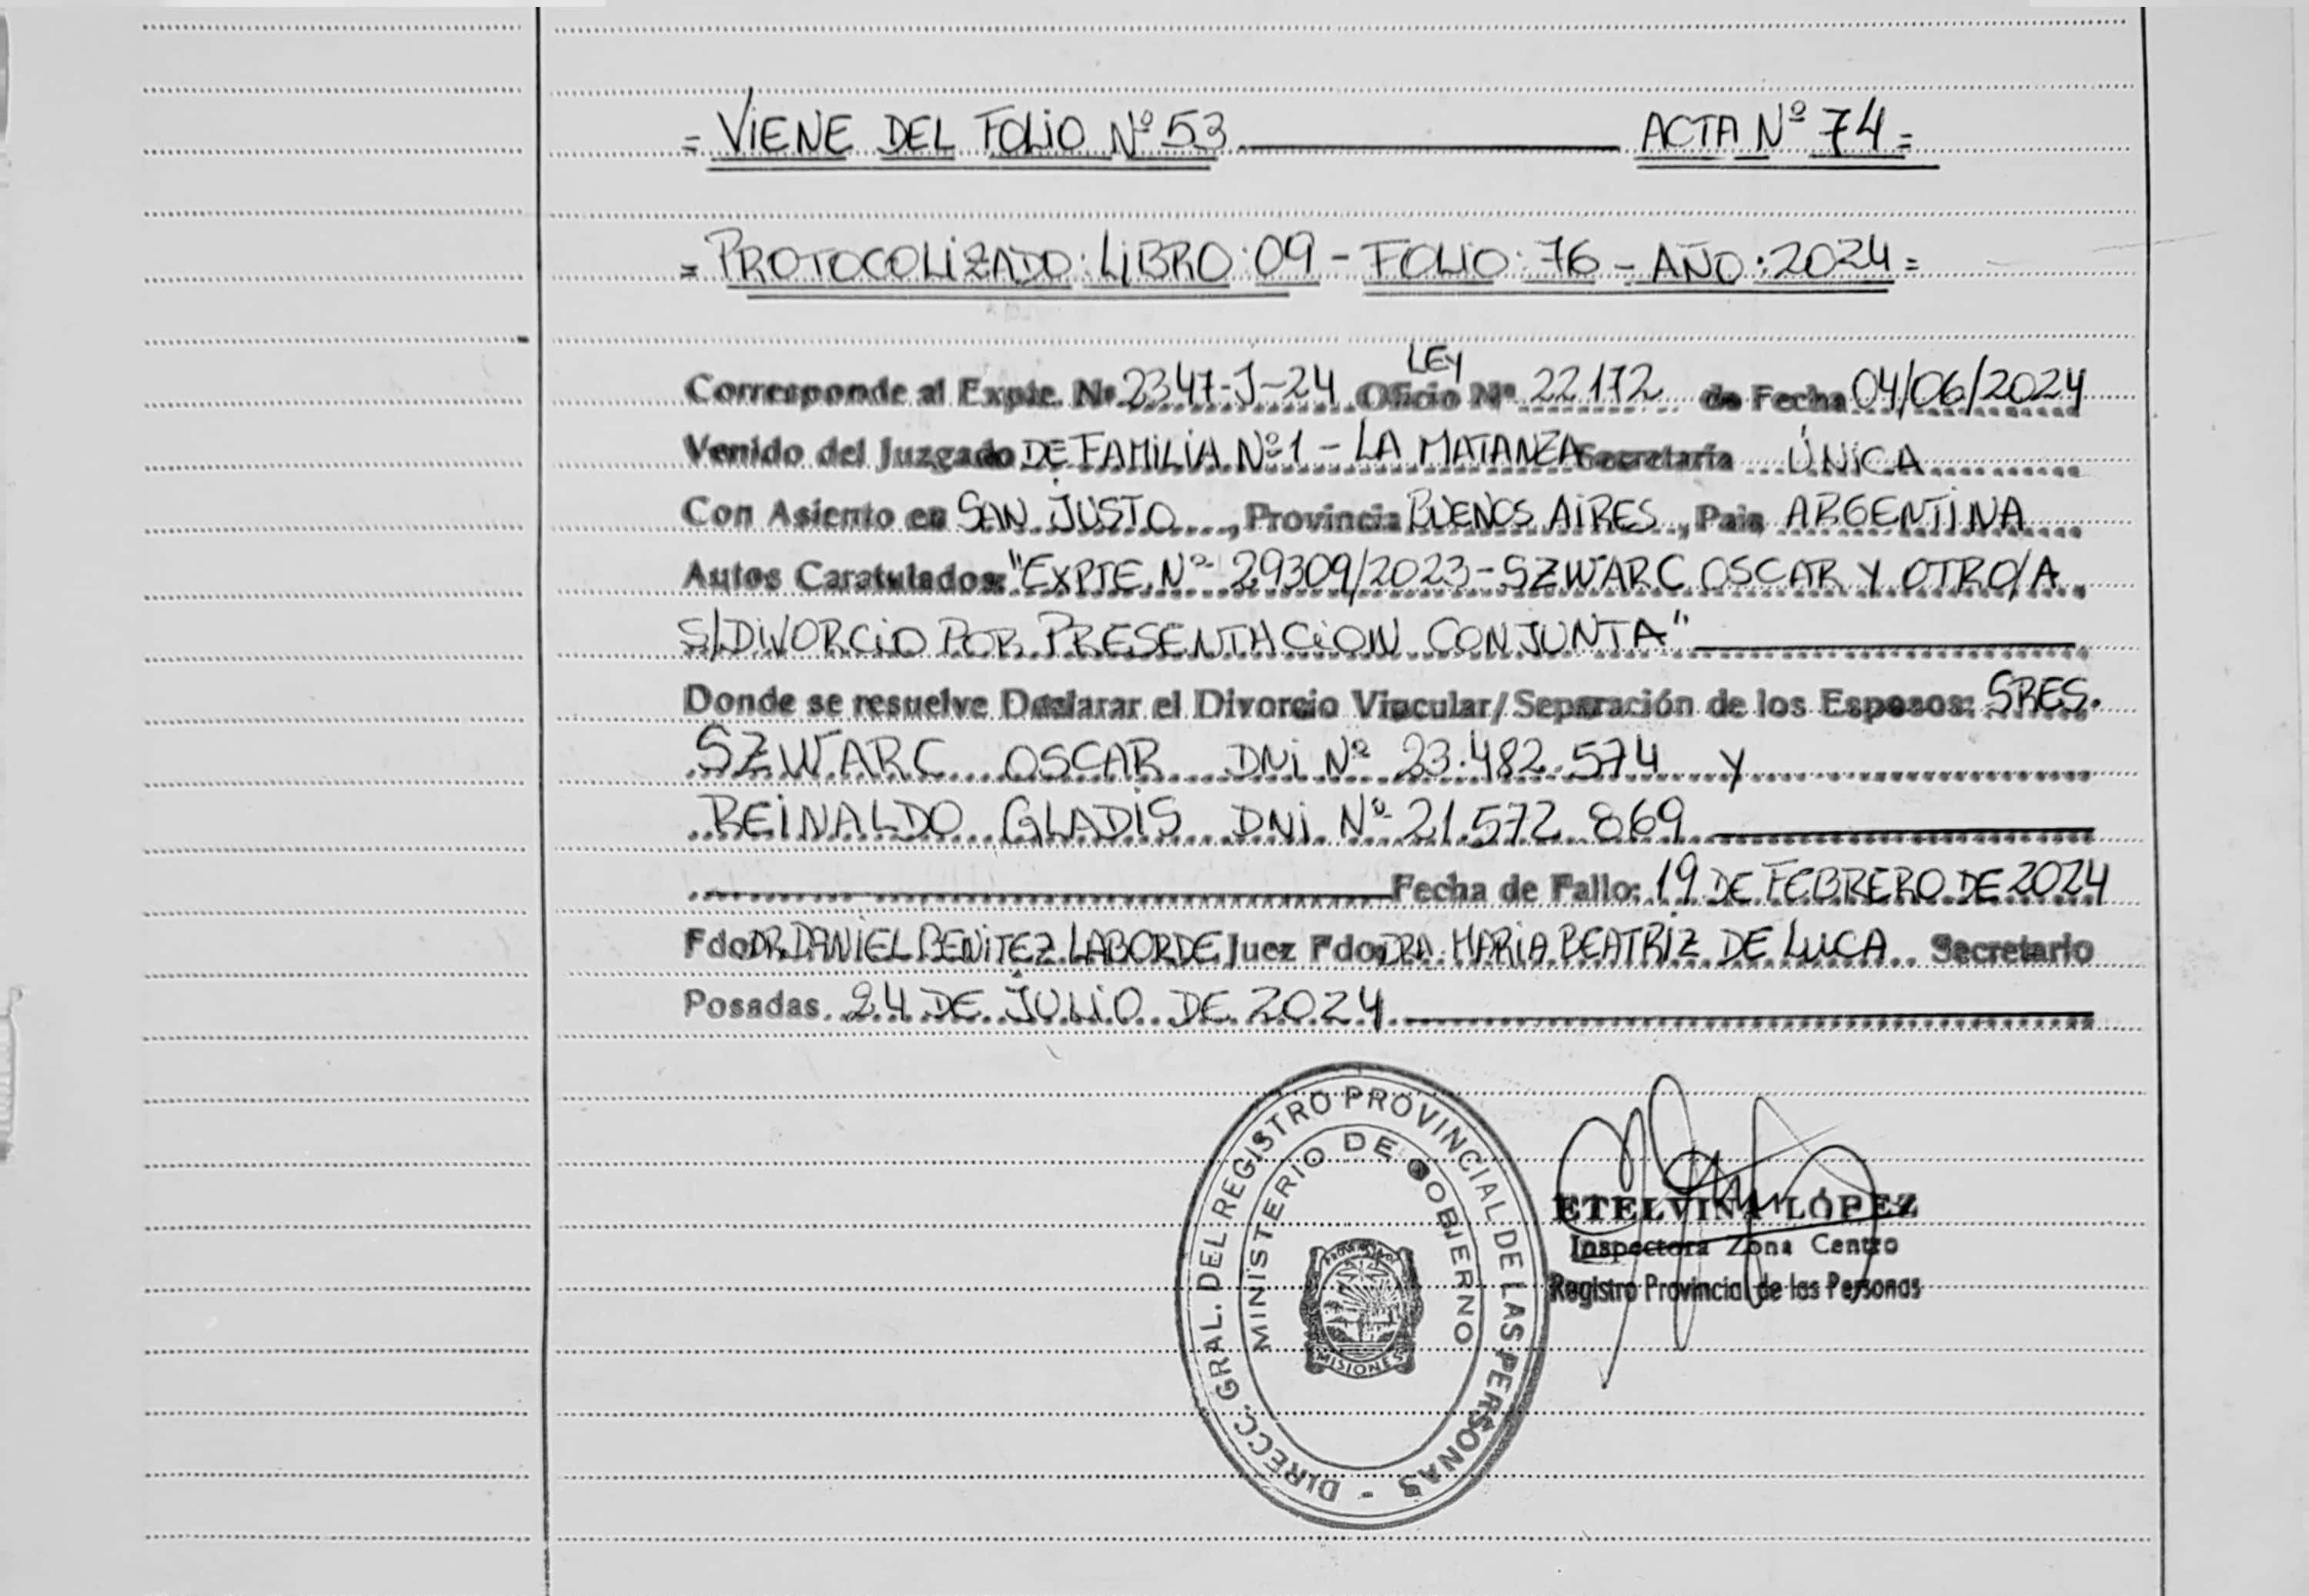 = VIENE DEL FOLIO Nº 53 ACTA Nº 74 =
= PROTOCOLIZADO: LIBRO: 09 - FOLIO: 76 - AÑO: 2024 =
LEY
Corresponde al Expte. Nº 2347-J-24 Oficio Nº 22172 de Fecha 04/06/2024
Venido del Juzgado DE FAMILIA Nº 1 - LA MATANZA Secretaría ÚNICA
Con Asiento en SAN JUSTO, Provincia BUENOS AIRES, País ARGENTINA
Autos Caratulados: "EXPTE. Nº 29309/2023 - SZWARC OSCAR Y OTRO/A
S/DIVORCIO POR PRESENTACION CONJUNTA"
Donde se resuelve Declarar el Divorcio Vincular/Separación de los Esposos: SRES.
SZWARC OSCAR DNI Nº 23.482.574 Y
REINALDO GLADIS DNI Nº 21.572.869
Fecha de Fallo: 19 DE FEBRERO DE 2024
Fdo. DR. DANIEL BENITEZ LABORDE Juez Fdo. DRA. MARIA BEATRIZ DE LUCA Secretario
Posadas, 24 DE JULIO DE 2024
DIRECC. GRAL. DEL REGISTRO PROVINCIAL DE LAS PERSONAS -
MINISTERIO DE GOBIERNO
MISIONES
ETELVINA LÓPEZ
Inspectora Zona Centro
Registro Provincial de las Personas